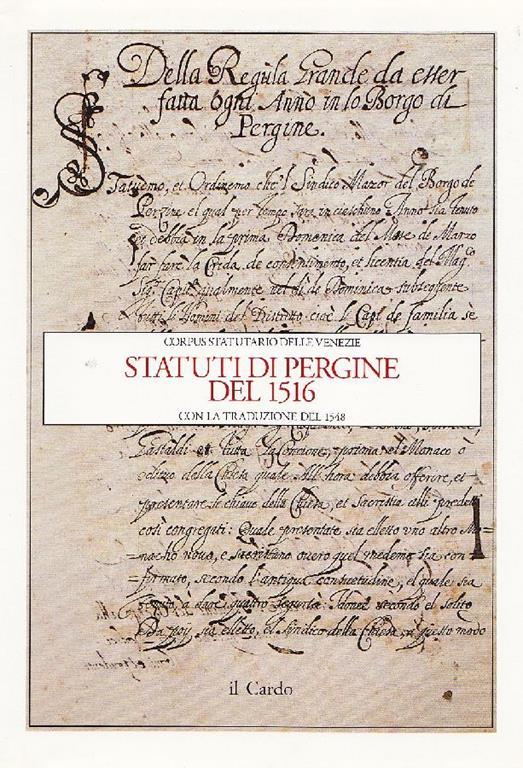 Della Regula Grande da esser
fatta ogni Anno in lo Borgo di
Pergine.
STatuemo, et Ordinemo che'l Sindico Mazor del Borgo de
Perzine el qual per tempo sara in ciaschuno Anno sia tenuto
et debbia in la prima Domenica del Mese de Marzo
far fare la Crida, de consentimento, et licentia del Mag.co
Sig.r Capit. qualmente nel di de Dominica subsequente
tutti li Homini del Distretto cioè l Capi de familia se
CORPUS STATUTARIO DELLE VENEZIE
STATUTI DI PERGINE
DEL 1516
CON LA TRADUZIONE DEL 1548
Gastaldi et tutta la Concione, prima el Monaco ò
della Chiesa quale All'hora debbia offerire, et
presentare le chiave della Chiesa, et Sacristia alli predetti
così congregati: Quale presentate sia elletto uno altro Mo=
=nacho novo, e sacristano overo quel medemo sia con=
=formato, secondo l'antiqua consuetudine, el quale sia
tenuto, à dare quattro segurta: Item secondo el solito
Da poi sia elletto, el Sindico della Chiesa, a questo modo
il Cardo